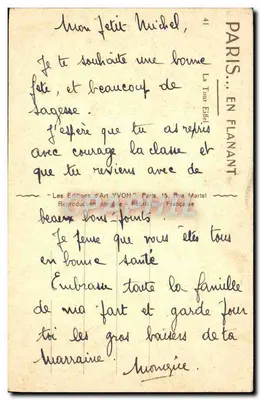 Mon Petit Michel,
Je te souhaite une bonne
fête, et beaucoup de
sagesse.
J'espère que tu as repris
avec courage la classe et
que tu reviens avec de
beaux bons-points
Je pense que vous êtes tous
en bonne santé
Embrasse toute la famille
de ma part et garde pour
toi les gros baisers de ta
Marraine!
Monique
PARIS... EN FLANANT
41 La Tour Eiffel
"Les Editions d'Art "YVON" Paris, 15, Rue Martel
Reproduction Française